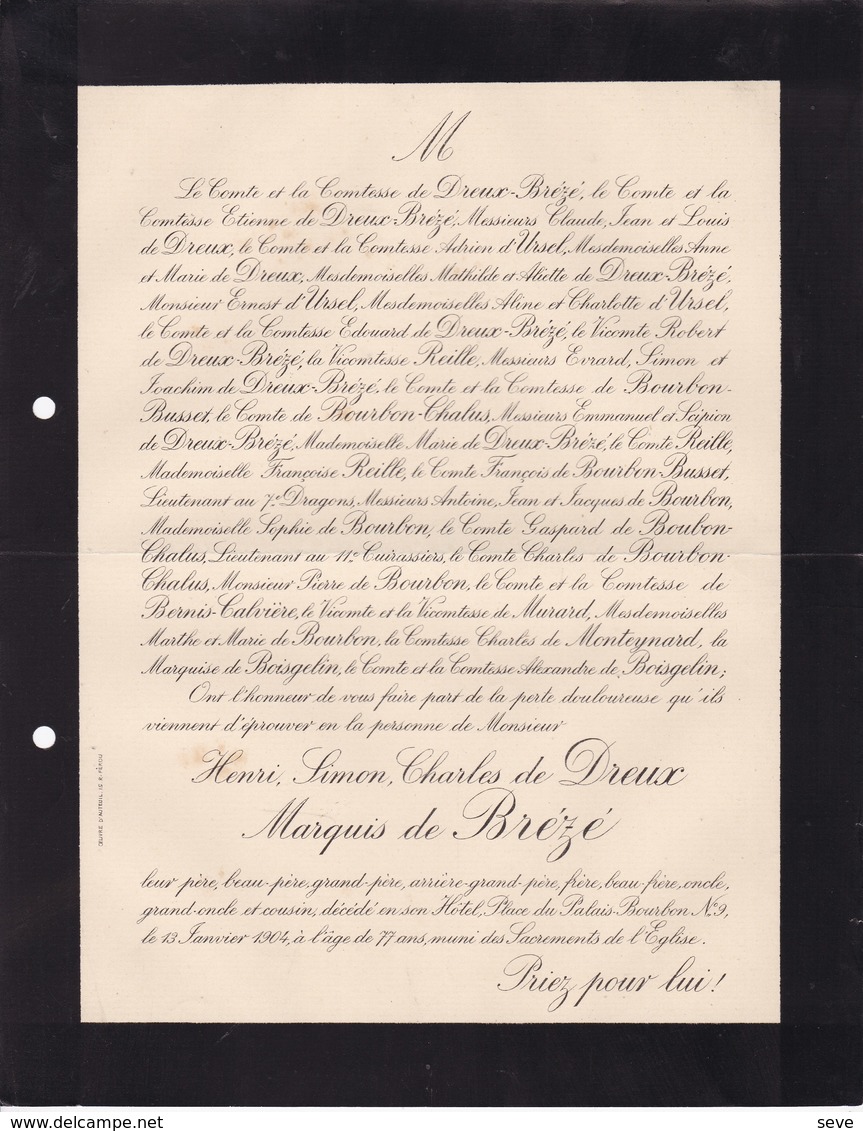 M
Le Comte et la Comtesse de Dreux-Brézé, le Comte et la
Comtesse Etienne de Dreux-Brézé, Messieurs Claude, Jean et Louis
de Dreux, le Comte et la Comtesse Adrien d'Ursel, Mesdemoiselles Anne
et Marie de Dreux, Mesdemoiselles Mathilde et Aliette de Dreux-Brézé,
Monsieur Ernest d'Ursel, Mesdemoiselles Aline et Charlotte d'Ursel,
le Comte et la Comtesse Edouard de Dreux-Brézé, le Vicomte Robert
de Dreux-Brézé, la Vicomtesse Reille, Messieurs Evrard, Simon et
Joachim de Dreux-Brézé, le Comte et la Comtesse de Bourbon-
Busset, le Comte de Bourbon-Chalus, Messieurs Emmanuel et Scipion
de Dreux-Brézé, Mademoiselle Marie de Dreux-Brézé, le Comte Reille,
Mademoiselle Françoise Reille, le Comte François de Bourbon-Busset,
Lieutenant au 7e Dragons, Messieurs Antoine, Jean et Jacques de Bourbon,
Mademoiselle Sophie de Bourbon, le Comte Gaspard de Boubon-
Chalus, Lieutenant au 11e Cuirassiers, le Comte Charles de Bourbon-
Chalus, Monsieur Pierre de Bourbon, le Comte et la Comtesse de
Bernis-Calvière, le Vicomte et la Vicomtesse de Murard, Mesdemoiselles
Marthe et Marie de Bourbon, la Comtesse Charles de Monteynard, la
Marquise de Boisgelin, le Comte et la Comtesse Alexandre de Boisgelin;
Ont l'honneur de vous faire part de la perte douloureuse qu'ils
viennent d'éprouver en la personne de Monsieur
Henri, Simon, Charles de Dreux
Marquis de Brézé
leur père, beau-père, grand-père, arrière-grand-père, frère, beau-frère, oncle,
grand-oncle et cousin, décédé en son Hôtel, Place du Palais-Bourbon No 9,
le 13 Janvier 1904, à l'âge de 77 ans, muni des Sacrements de l'Eglise.
Priez pour lui!
ŒUVRE D'AUTEUIL. IC. R. PÉROU
delcampe.net
seve